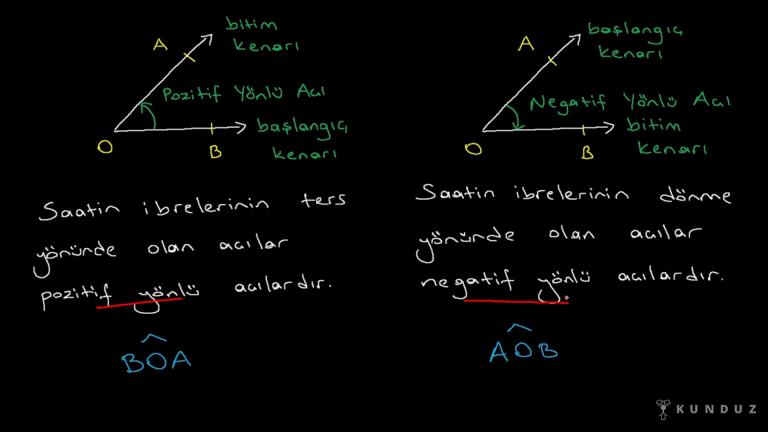 bitim
kenarı
A
Pozitif Yönlü Açı
başlangıç
kenarı
O
B
Saatin ibrelerinin ters
yönünde olan açılar
pozitif yönlü açılardır.
BOA
başlangıç
kenarı
A
Negatif Yönlü Açı
bitim
kenarı
O
B
Saatin ibrelerinin dönme
yönünde olan açılar
negatif yönlü açılardır.
AOB
KUNDUZ